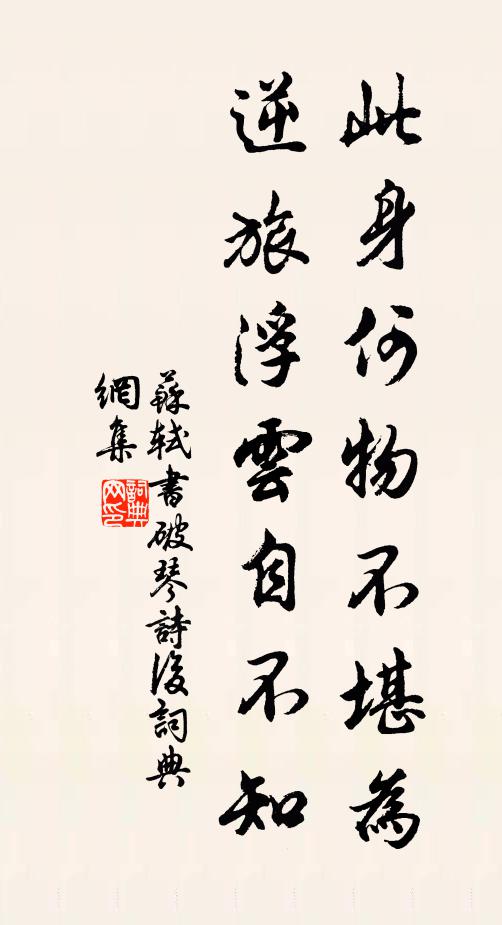 此身何物不堪為
逆旅浮雲自不知
蘇軾書破琴詩後詞典
網集
詞典
网印